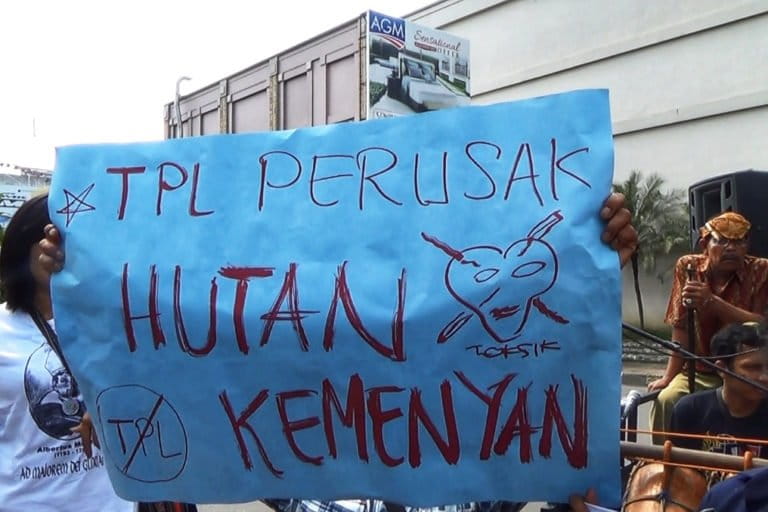 AGM
Sensational
TPL PERUSAK
HUTAN
TOKSIK
TPL
KEMENYAN
AD MAIOREM DEI GLORIA